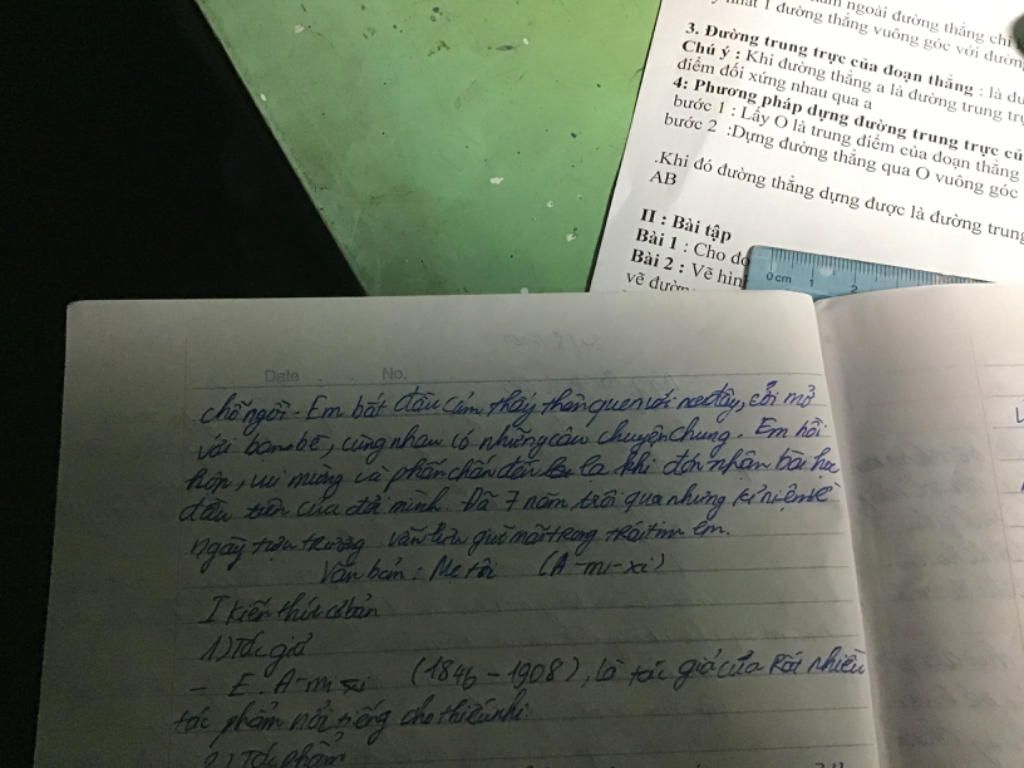 ngoài đường thẳng chỉ
nhất 1 đường thẳng vuông góc với đường
3. Đường trung trực của đoạn thẳng : là đư
Chú ý : Khi đường thẳng a là đường trung trự
điểm đối xứng nhau qua a
4: Phương pháp dựng đường trung trực củ
bước 1 : Lấy O là trung điểm của đoạn thẳng
bước 2 :Dựng đường thẳng qua O vuông góc
.Khi đó đường thẳng dựng được là đường trung
AB
II : Bài tập
Bài 1 : Cho đo
Bài 2 : Vẽ hìn
vẽ đườn
0 cm 1 2
Date No.
chỗ ngồi. Em bắt đầu cảm thấy thân quen với nơi đây, cởi mở
với bạn bè, cùng nhau có những câu chuyện chung. Em hồi
hộp, vui mừng và phấn chấn đến lạ khi đón nhận bài học
đầu tiên của đời mình. Đã 7 năm trôi qua nhưng kỉ niệm về
ngày tựu trường vẫn lưu giữ mãi trong trái tim em.
Văn bản : Mẹ tôi (A-mi-xi)
I Kiến thức cơ bản
1) Tác giả
- E. A-mi-xi (1846 - 1908), là tác giả của rất nhiều
tác phẩm nổi tiếng cho thiếu nhi
2) Tác phẩm